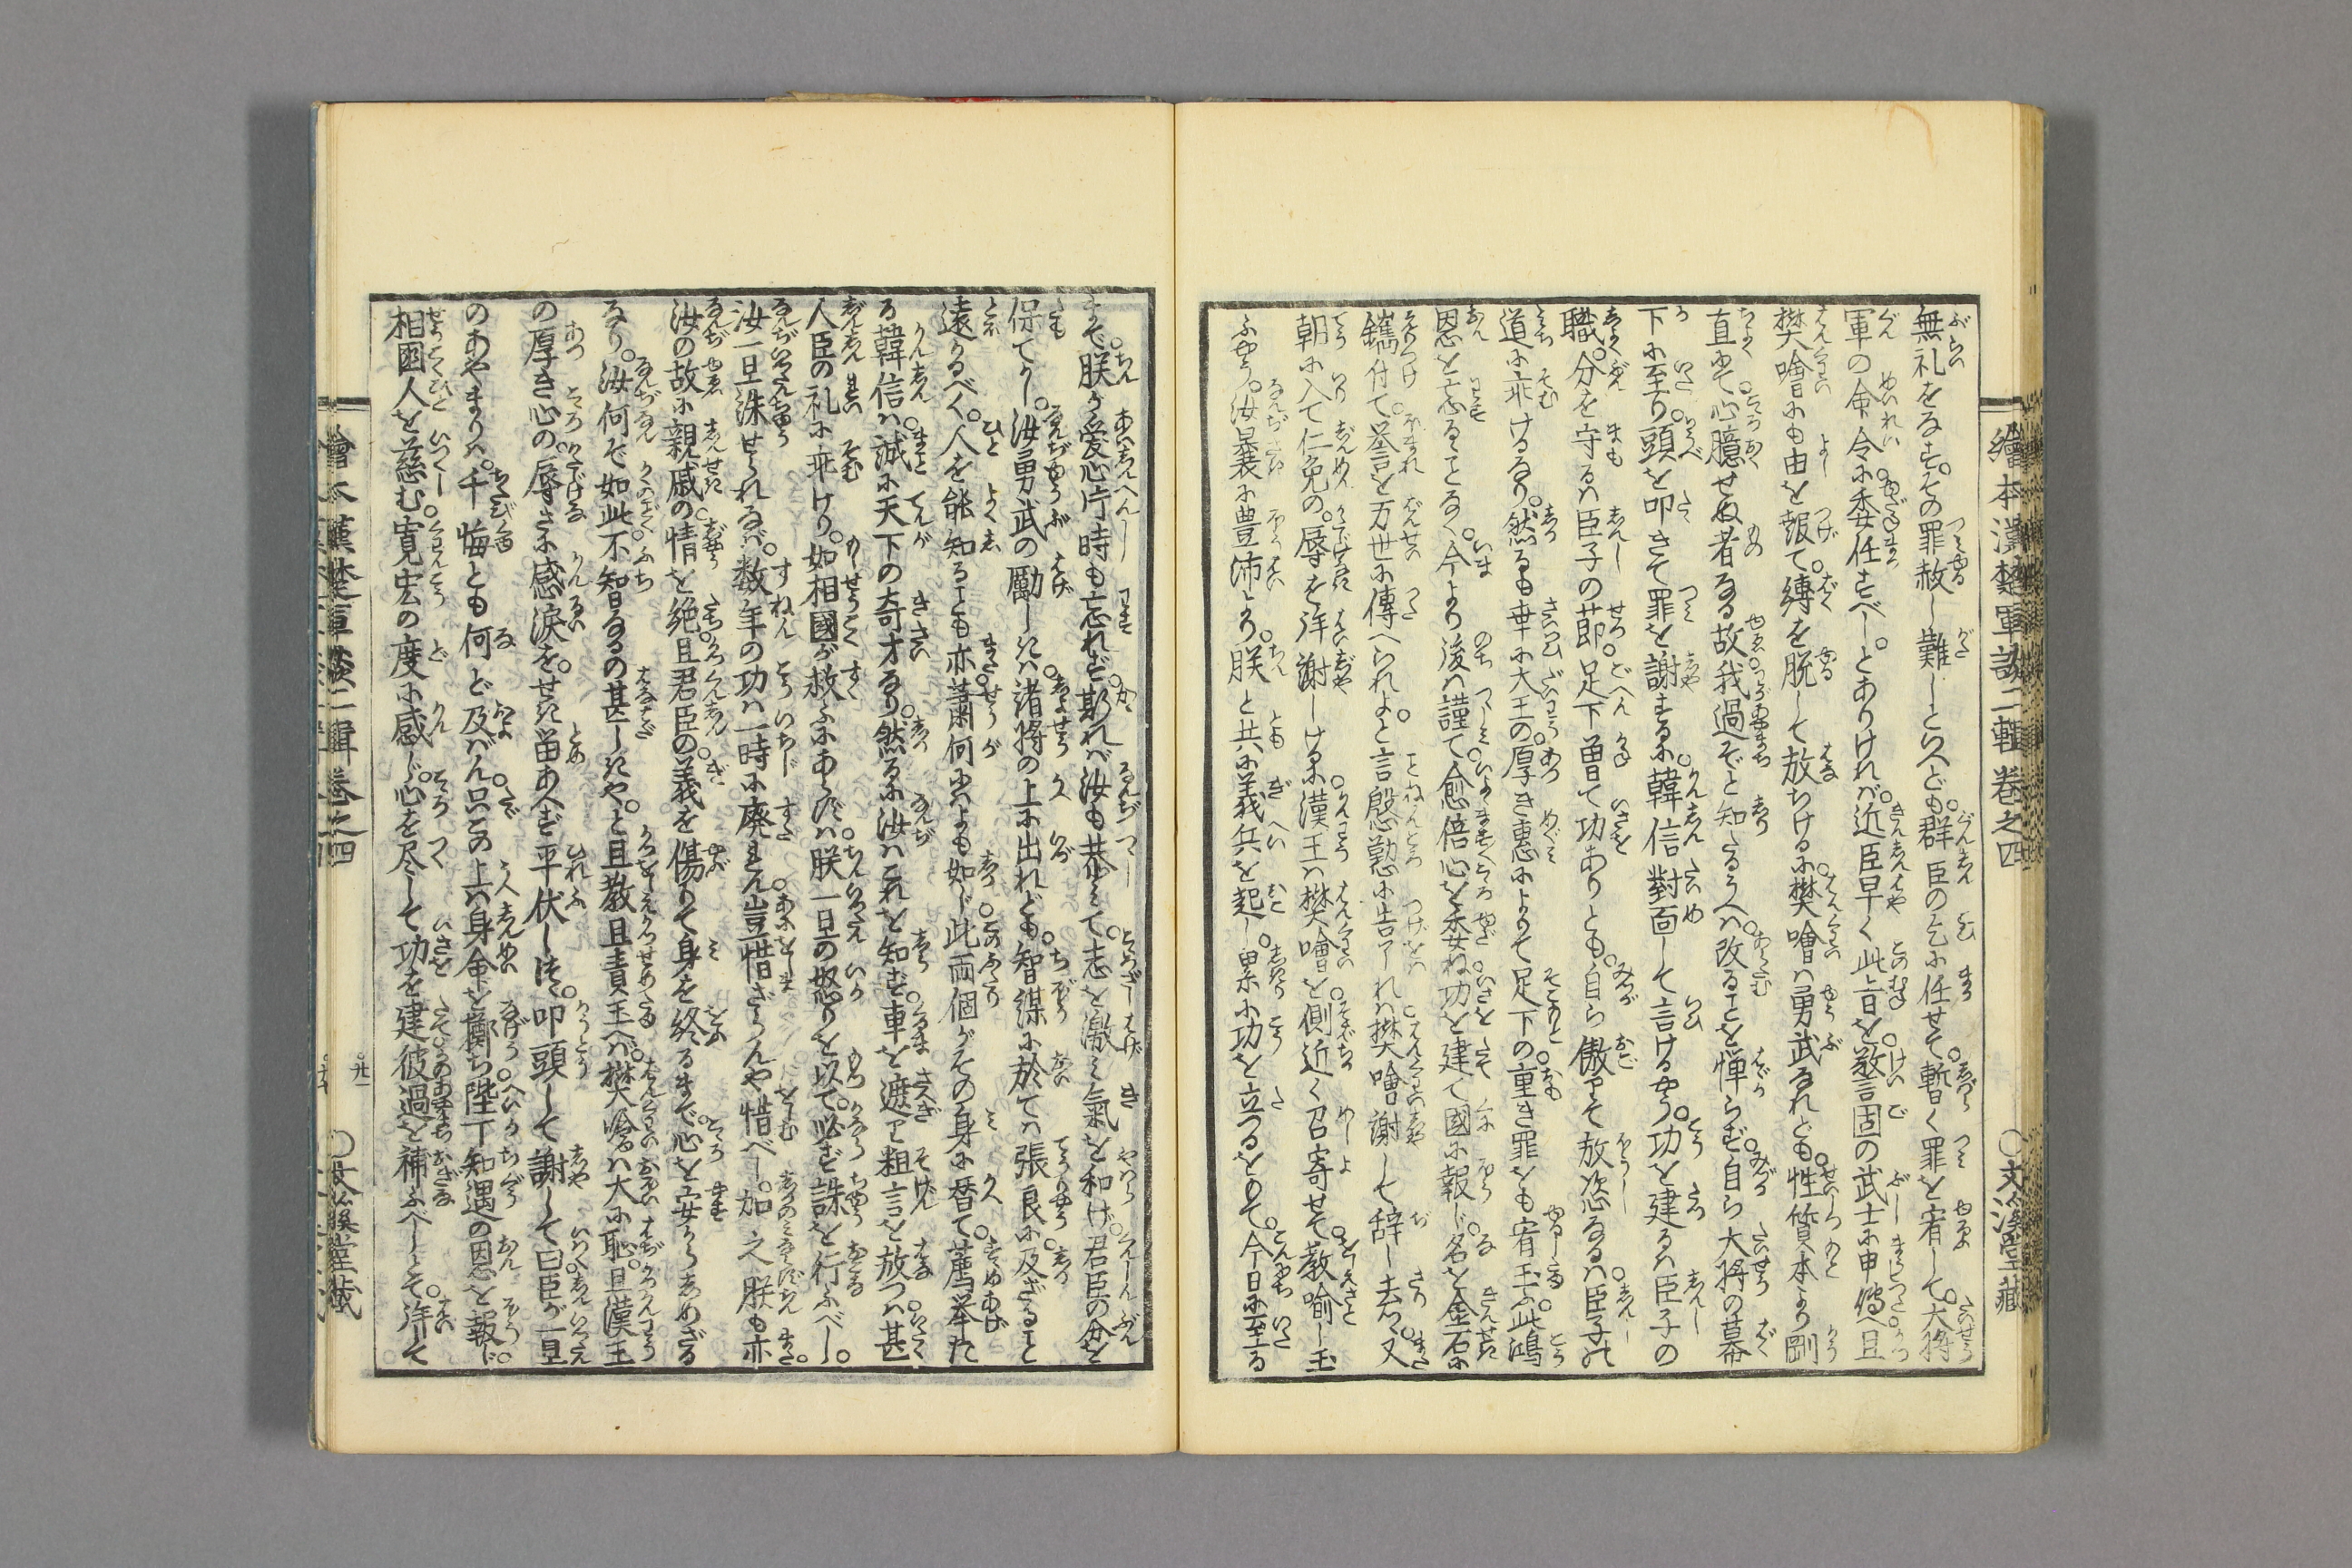 繪本漢楚軍談二輯 巻之四 ○文溪堂藏
無礼をなす。その罪赦し難しといへども。群臣の乞に任せて。暫く罪を宥して。大将
軍の命令に委任すべし。とありければ。近臣早く此旨を。敬言固の武士に申傳へ且
樊噲にも由を報て。縛を脱して放ちけるに。樊噲ハ勇武なれども。性質本より剛
直にて。心臆せぬ者なる故。我過ぞと知たるうへハ。改ることを憚らず。自ら大将の幕
下に至り。頭を叩きて罪を謝するに。韓信對面して言けるやう。功を建るハ臣子の
職。分を守るハ臣子の節。足下曽て功ありとも。自ら傲りて放恣なるハ。臣子の
道に乖けるなり。然るも幸に大王の。厚き惠によりて足下の。重き罪をも宥玉ふ。此鴻
恩を忘るゝことなく。今より後ハ謹て。愈倍心を委ね。功を建て國に報じ。名を金石に
鐫付て。誉を万世に傳へられよ。と言慇懃に告了れハ。樊噲謝して辞し去ぬ。又
朝に入て仁免の。辱を拝謝しけるに。漢王ハ樊噲を。側近く召寄せて。教喻し玉
ふやう。汝曩に豊沛より。朕と共に義兵を起し。累に功を立つるをもて。今日に至る
まで。朕が愛心片時も忘れず。斯れバ汝も恭ミて。志を激ミ氣を和げ。君臣の分を
保てかし。汝勇武の勵しきハ。諸将の上に出れども。智謀に於てハ張良に。及ざること
遠かるべく。人を能知ることも亦。蕭何にハよも如じ。此両個がその身に替て。薦挙た
る韓信ハ。誠に天下の奇才なり。然るに汝ハこれを知ず。車を遮り粗言を放つハ。甚
人臣の礼に乖けり。如相國が救ふにあらずハ。朕一旦の怒りを以て。必ず誅を行ふべし。
汝一旦誅せられなバ。数年の功ハ一時に廃れん。豈惜ざらんや惜べし。加之朕も亦。
汝の故に親戚の。情を絶。且君臣の。義を傷りて身を終るまで。心を安からしめざる
なり。汝何ぞ如此。不智なるの甚しきや。と且教且責玉へバ。樊噲ハ大に恥。且漢王
の厚き心の。辱さに感涙を。せき留あへず平伏しつゝ。叩頭して謝して曰。臣が一旦
のあやまりハ。千悔とも何ど及ばん。只この上ハ身命を。擲ち陛下知遇の恩を報ん。
相國人を慈む。寛宏の度に感じ。心を尽して功を建。彼過を補ふべしとぞ。拝して
繪本漢楚軍談二輯 巻之四 ○廿一 ○文溪堂藏